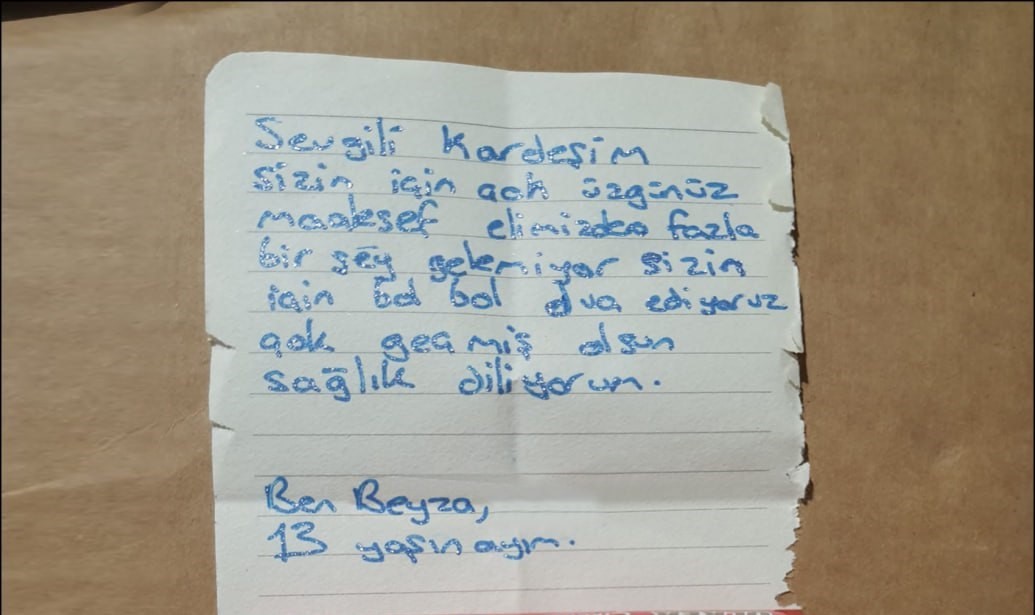 Sevgili Kardeşim
sizin için çok üzgünüz
maalesef elimizden fazla
bir şey gelemiyor sizin
için bol bol dua ediyoruz
çok geçmiş olsun
sağlık diliyorum.
Ben Beyza,
13 yaşın ayım.